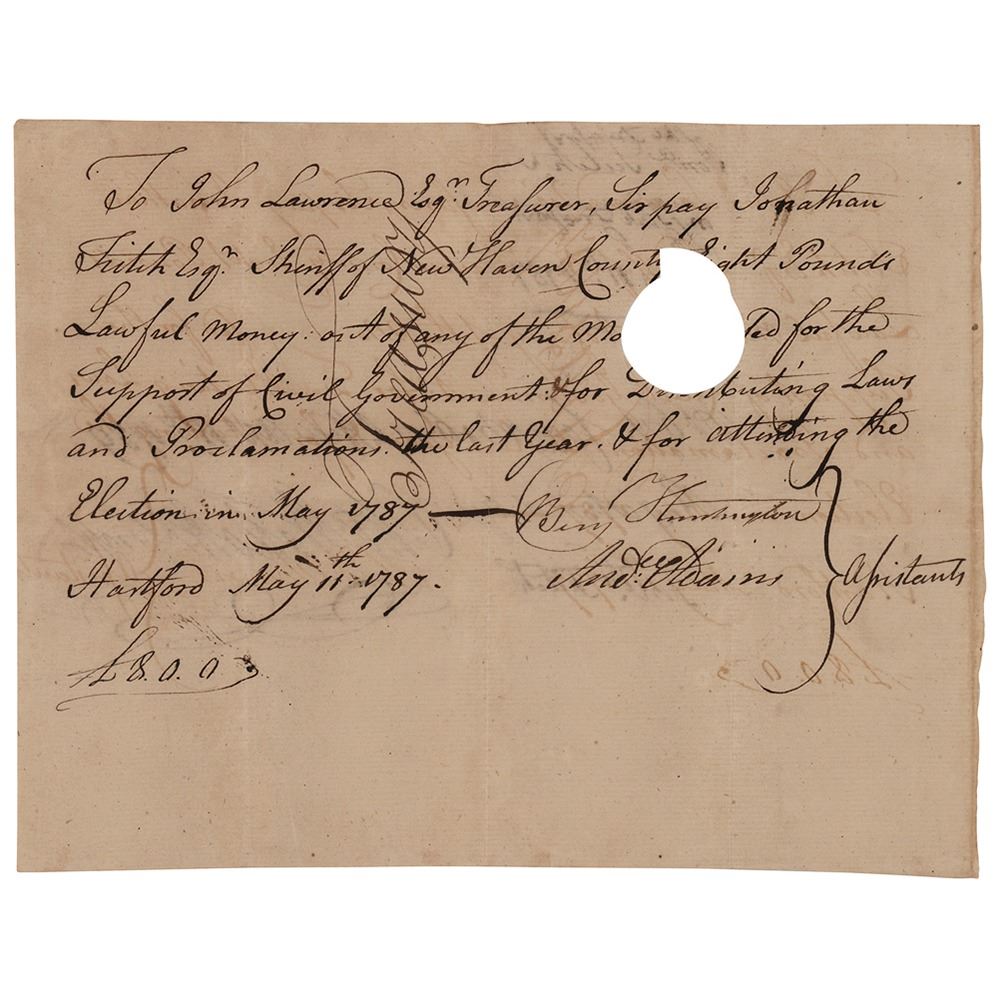 To John Lawrence Esqr. Treasurer, Sir pay Jonathan
Fitch Esqr. Sheriff of New Haven County Eight Pounds
Lawful Money: out of any of the Mo ted for the
Support of Civil Government: & for Distributing Laws
and Proclamations the last Year. & for attending the
Election in May 1787 — Benj Huntington
Hartford May 11th 1787. Andw Adams Assistants
£8.0.0